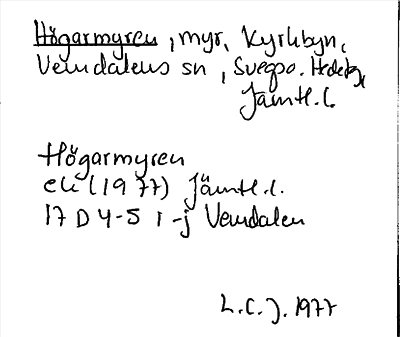 Högarmyren, myr, Kyrkbyn,
Vemdalens sn, Svegs o. Hede
Jämtl. l.
Högarmyren
ek (1977) Jämtl. l.
17 D 4-5 i-j Vemdalen
L.C.J. 1977